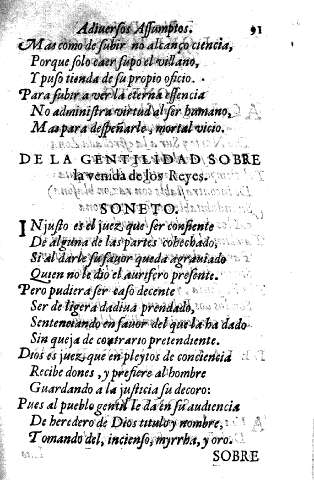 Adiuersos Assumptos. 91
Mas como de subir no alcançò ciencia,
Porque solo caer supo el villano,
Y puso tienda de su propio oficio.
Para subir a ver la eterna essencia
No administra virtud al ser humano,
Mas para despeñarle, mortal vicio.
DE LA GENTILIDAD SOBRE
la venida de los Reyes.
SONETO.
INjusto es el juez, que ser consiente
De alguna de las partes cohechado,
Si al darle su fauor queda agrauiado
Quien no le dio el aurifero presente.
Pero pudiera ser caso decente
Ser de ligera dadiua prendado,
Sentenciando en fauor del que la ha dado
Sin queja de contrario pretendiente.
Dios es juez, que en pleytos de conciencia
Recibe dones, y prefiere al hombre
Guardando a la justicia su decoro:
Pues al pueblo gentil le da en su audiencia
De heredero de Dios titulo y nombre,
Tomando del, incienso, myrrha, y oro.
SOBRE